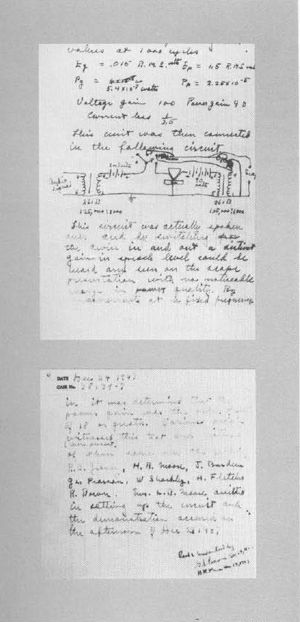 values at 1000 cycles
Eg = .015 R.M.S. volts Ep = 1.5 R.M.S. volts
Pg = 5.4 x 10⁻⁷ watts Pp = 2.25 x 10⁻⁵
Voltage gain 100 Power gain 40
Current loss 1/2.5
This unit was then connected
in the following circuit.
261 Ω 261 Ω
125,000:1000 125,000:1000
This circuit was actually spoken
over and by switching the
device in and out a distinct
gain in speech level could be
heard and seen on the scope
presentation with no noticeable
change in quality. By
measurements at a fixed frequency
DATE Dec 24 1947
CASE No. 38139-7
in it was determined that the
power gain was the order
of 18 or greater. Various people
witnessed this test and
of whom some were the
R.B. Gibney, H.R. Moore, J. Bardeen
G.L. Pearson, W. Shockley, H. Fletcher
R. Bown. Mr. H.R. Moore assisted
in setting up the circuit and
the demonstration occurred on
the afternoon of Dec 23 1947
Read & understood by